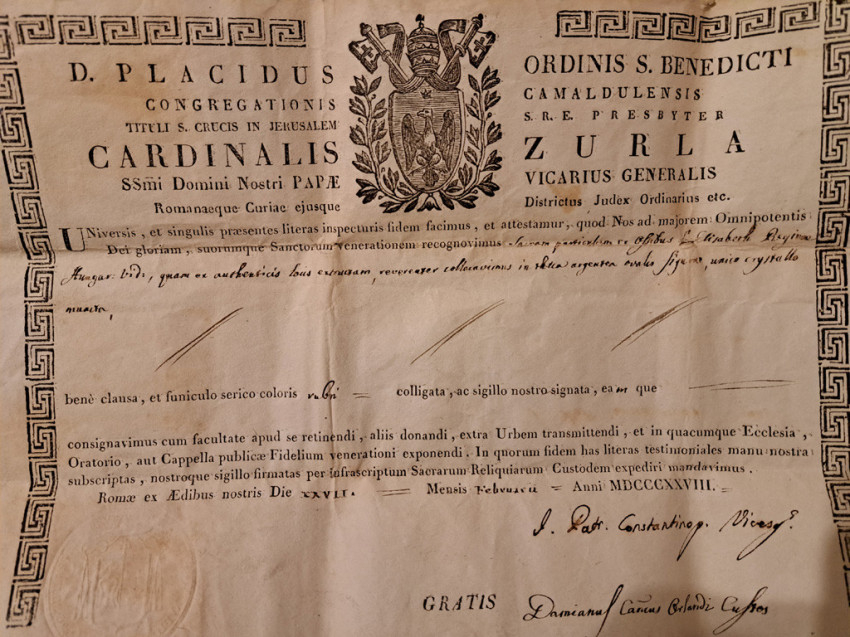 D. PLACIDUS ORDINIS S. BENEDICTI
CONGREGATIONIS CAMALDULENSIS
TITULI S. CRUCIS IN JERUSALEM S. R. E. PRESBYTER
CARDINALIS ZURLA
SSm̃i Domini Nostri PAPÆ VICARIUS GENERALIS
Romanaeque Curiae ejusque Districtus Judex Ordinarius etc.
UNiversis, et singulis præsentes literas inspecturis fidem facimus, et attestamur, quod Nos ad majorem Omnipotentis
Dei gloriam, suorumque Sanctorum venerationem recognovimus Sacram particulam ex Ossibus S. Elisabeth Regina
Hungar: quam ex authenticis reverenter collocavimus in theca argentea ovalis figurae, unico crystallo
munita,
benè clausa, et funiculo serico coloris rubri colligata, ac sigillo nostro signata, eam que
consignavimus cum facultate apud se retinendi, aliis donandi, extra Urbem transmittendi, et in quacumque Ecclesia,
Oratorio, aut Cappella publicæ Fidelium venerationi exponendi. In quorum fidem has literas testimoniales manu nostra
subscriptas, nostroque sigillo firmatas per infrascriptum Sacrarum Reliquiarum Custodem expediri mandavimus.
Romæ ex Ædibus nostris Die XXVII. Mensis Februarii Anni MDCCCXXVIII.
J. Patr. Constantinop. Vicesg.
GRATIS Damianus Orlandi Custos